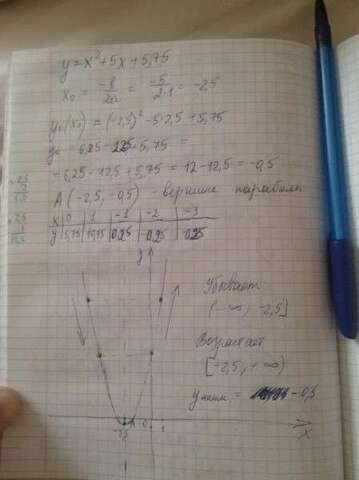 y = x² + 5x + 5,75
x₀ = -в/2a = -5/2·1 = -2,5
y₀(x₀) = (-2,5)² - 5·2,5 + 5,75
y₀ = 6,25 - 12,5 + 5,75 =
= 6,25 - 12,5 + 5,75 = 12 - 12,5 = -0,5
A (-2,5, -0,5) - вершина параболы
x 0 1 -1 -2 -3
y 5,75 11,75 -0,25 -0,25
y
Убывает
(-∞, -2,5]
Возрастает
[-2,5, +∞)
y наим. = -0,5
0 1 x